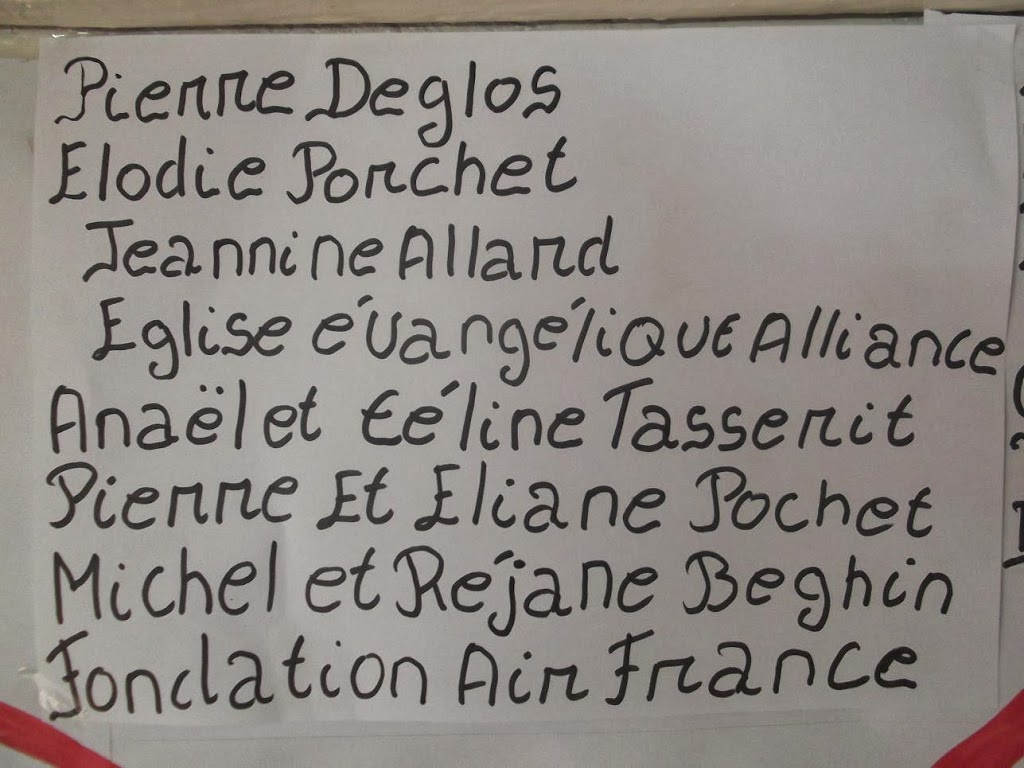 Pierre Deglos
Elodie Porchet
Jeannine Allard
Eglise évangélique Alliance
Anaël et Céline Tasserit
Pierre Et Eliane Pochet
Michel et Réjane Beghin
Fondation Air France